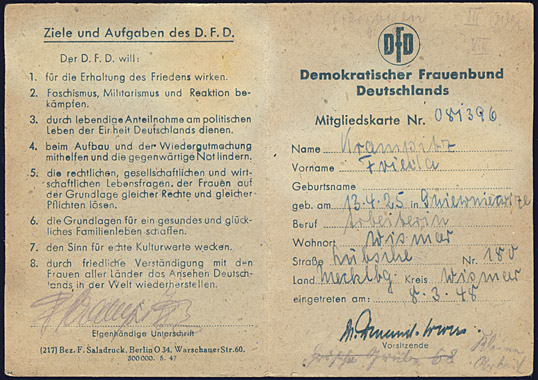 Ziele und Aufgaben des D. F. D.
Der D. F. D. will:
1. für die Erhaltung des Friedens wirken.
2. Faschismus, Militarismus und Reaktion be-
kämpfen.
3. durch lebendige Anteilnahme am politischen
Leben der Einheit Deutschlands dienen.
4. beim Aufbau und der Wiedergutmachung
mithelfen und die gegenwärtige Not lindern.
5. die rechtlichen, gesellschaftlichen und wirt-
schaftlichen Lebensfragen, der Frauen auf
der Grundlage gleicher Rechte und gleicher
Pflichten lösen.
6. die Grundlagen für ein gesundes und glück-
liches Familienleben schaffen.
7. den Sinn für echte Kulturwerte wecken.
8. durch friedliche Verständigung mit den
Frauen aller Länder das Ansehen Deutsch-
lands in der Welt wiederherstellen.
Eigenhändige Unterschrift
(217) Bez. F. Saladruck, Berlin O 34, Warschauer Str. 60.
500 000. 5. 47
DFD
Demokratischer Frauenbund
Deutschlands
Mitgliedskarte Nr. 081396
Name Krampitz
Vorname Frieda
Geburtsname
geb. am 13.4.25 in
Beruf Arbeiterin
Wohnort Wismar
Straße Lübsche Nr. 180
Land Mecklbg. Kreis Wismar
eingetreten am: 8.3.48
Vorsitzende